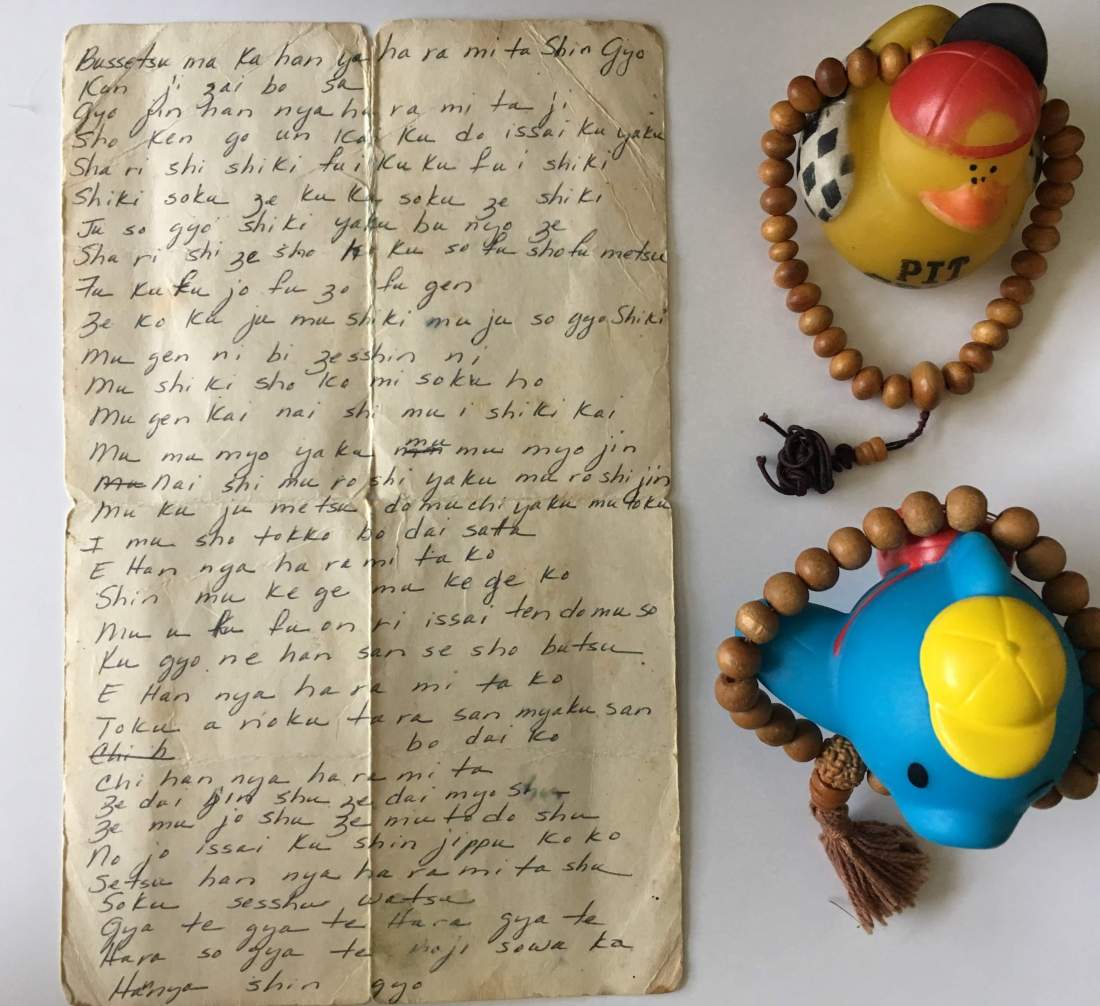 Bussetsu ma ka han ya ha ra mi ta Shin Gyo
Kan ji zai bo sa
Gyo jin han nya ha ra mi ta ji
Sho ken go un kai ku do issai ku yaku
Sha ri shi shiki fu i ku ku fu i shiki
Shiki soku ze ku ku soku ze shiki
Ju so gyo shiki yaku bu nyo ze
Sha ri shi ze sho ku so fu sho fu metsu
Fu ku fu jo fu zo fu gen
Ze ko ku ju mu shiki mu ju so gyo Shiki
Mu gen ni bi zesshin ni
Mu shi ki sho ko mi soku ho
Mu gen kai nai shi mu i shiki kai
Mu mu myo yaku mu mu myo jin
mu Nai shi mu ro shi yaku mu ro shi jin
Mu ku ju metsu do mu chi yaku mu toku
I mu sho tokko bo dai satta
E Han nya ha ra mi ta ko
Shin mu ke ge mu ke ge ko
Mu u ku fu on ri issai ten do mu so
Ku gyo ne han san se sho butsu
E Han nya ha ra mi ta ko
Toku a noku ta ra san myaku san
Chi h bo dai ko
Chi han nya ha ra mi ta
Ze dai jin shu ze dai myo shu
Ze mu jo shu Ze mu to do shu
No jo issai ku shin jippu ko ko
Setsu han nya ha ra mi ta shu
Soku sesshu watsu
Gya te gya te Hara gya te
Hara so gya te boji sowa ka
Hanya shin gyo
PIT